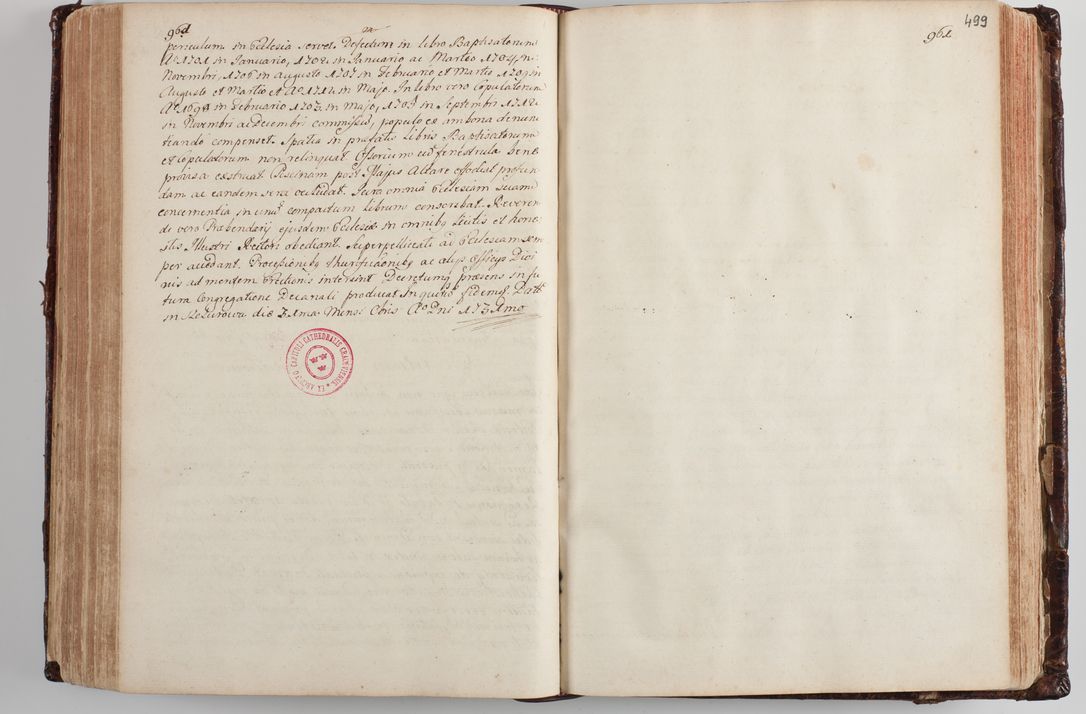 96d
periculum in Ecclesia servet. Defectum in libro Baptisatorum
Aº 1701 in Januario, 1702 in Januario ac Martio 1704, in
Novembri, 1706 in Augusto 1707 in Februario et Martio 1709 in
Augusto et Martio et Aº 1714 in Majo. In libro vero Copulatorum
Aº 1698 in Februario 1703 in Majo, 1709 in Septembri 1712
in Novembri ac Decembri commissum, populo ex ambona denun
tiando compenset. Spatia in prefatis libris Baptisatorum
et Copulatorum non relinquat. Ossorium cum fenestrula bene
provisa exstruat. Piscinam post Majus Altare effodiat profun
dam ac eandem sera occludat. Jura omnia Ecclesiam suam
concernentia, in unum compactum librum conscribat. Reveren
di vero Prabendarij ejusdem Ecclesiæ in omnibus licitis et hone
stis Illustri Rectori obediant. Superpelliceati ad Ecclesiam sem
per accedant. Processionibus thurificationibus ac alijs Officijs Divi
nis ad mentem Erectionis intersint. Decretumque præsens in fu
tura Congregatione Decanali producat. In quorum fidem Datt
in die Ima Mensis Obris Aº Dni 1731mo
EX ARCHIVO CAPITULI CATHEDRALIS CRACOVIENSIS
961
499